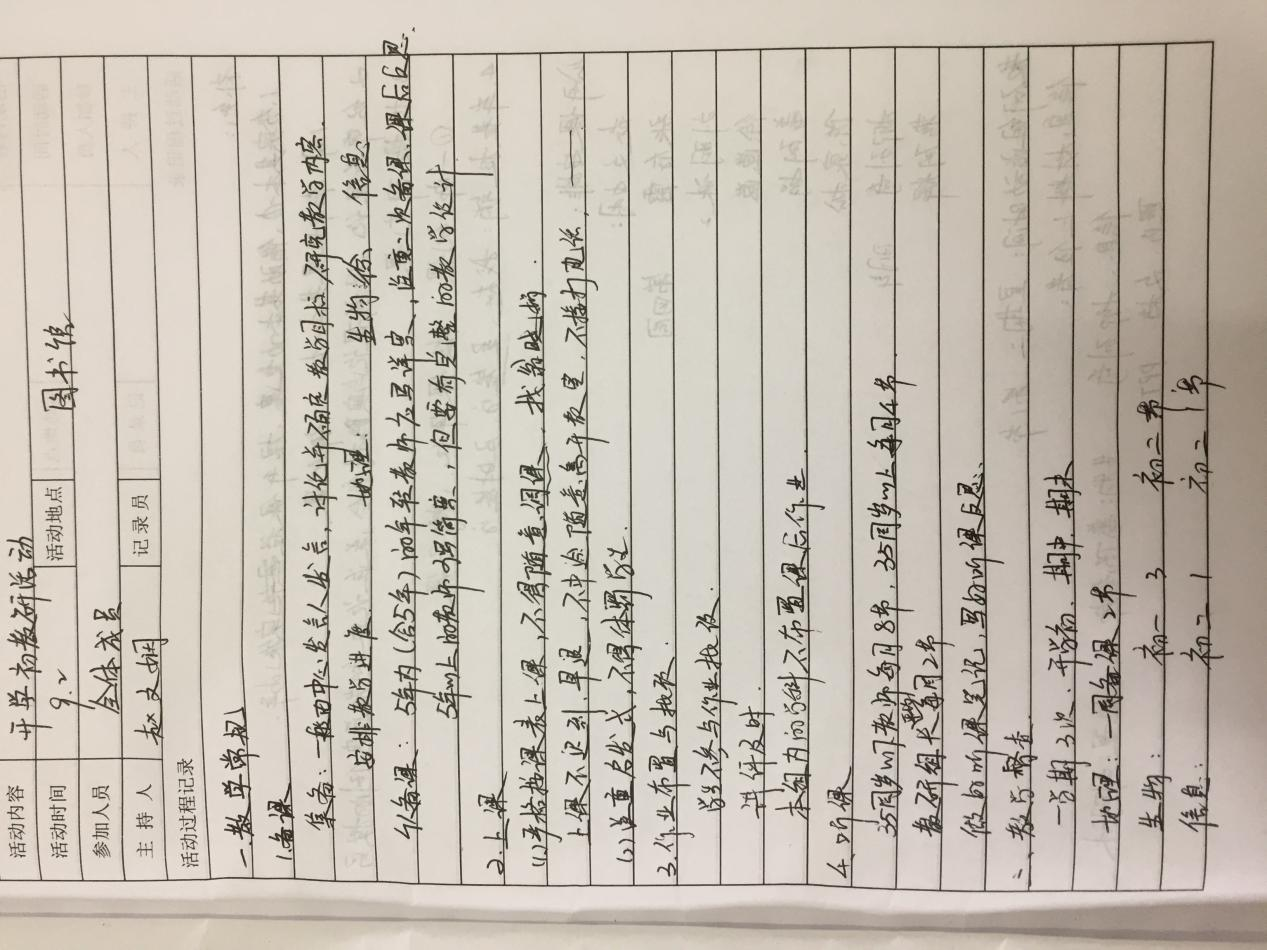 活动内容 开学初教研活动
活动时间 9.2 活动地点 图书馆
参加人员 全体成员
主持人 赵文娟 记录员
活动过程记录
一.教学常规
1.备课
集备:一般由中心发言人发言,讨论并确定教学目标,研究教学内容.
安排教学进度. 地理: 生物:徐、 信息:
个备课:5年内(含5年)的年轻教师应写详案,注重二次备课、课后反思.
5年以上的教师可写简案,但要有完整的教学设计
2.上课
(1)严格按课表上课,不得随意调课、找翁晓娟.
上课不迟到、早退,不中途随意离开教室,不接打电话.
(2)注重启发式,不得体罚学生.
3.作业布置与批改.
学生不参与作业批改.
讲评及时.
本组内的学科不布置课后作业.
4.听课
35周岁以下教师每月8节,35周岁以上每月4节.
教研组长每月2节
做好听课笔记,写好听课反思.
二.教与督查.
一学期3次、开学初、期中、期末
地理:一周备课2节
生物: 初一 3 初二 节
信息: 初二 1 初二 1节